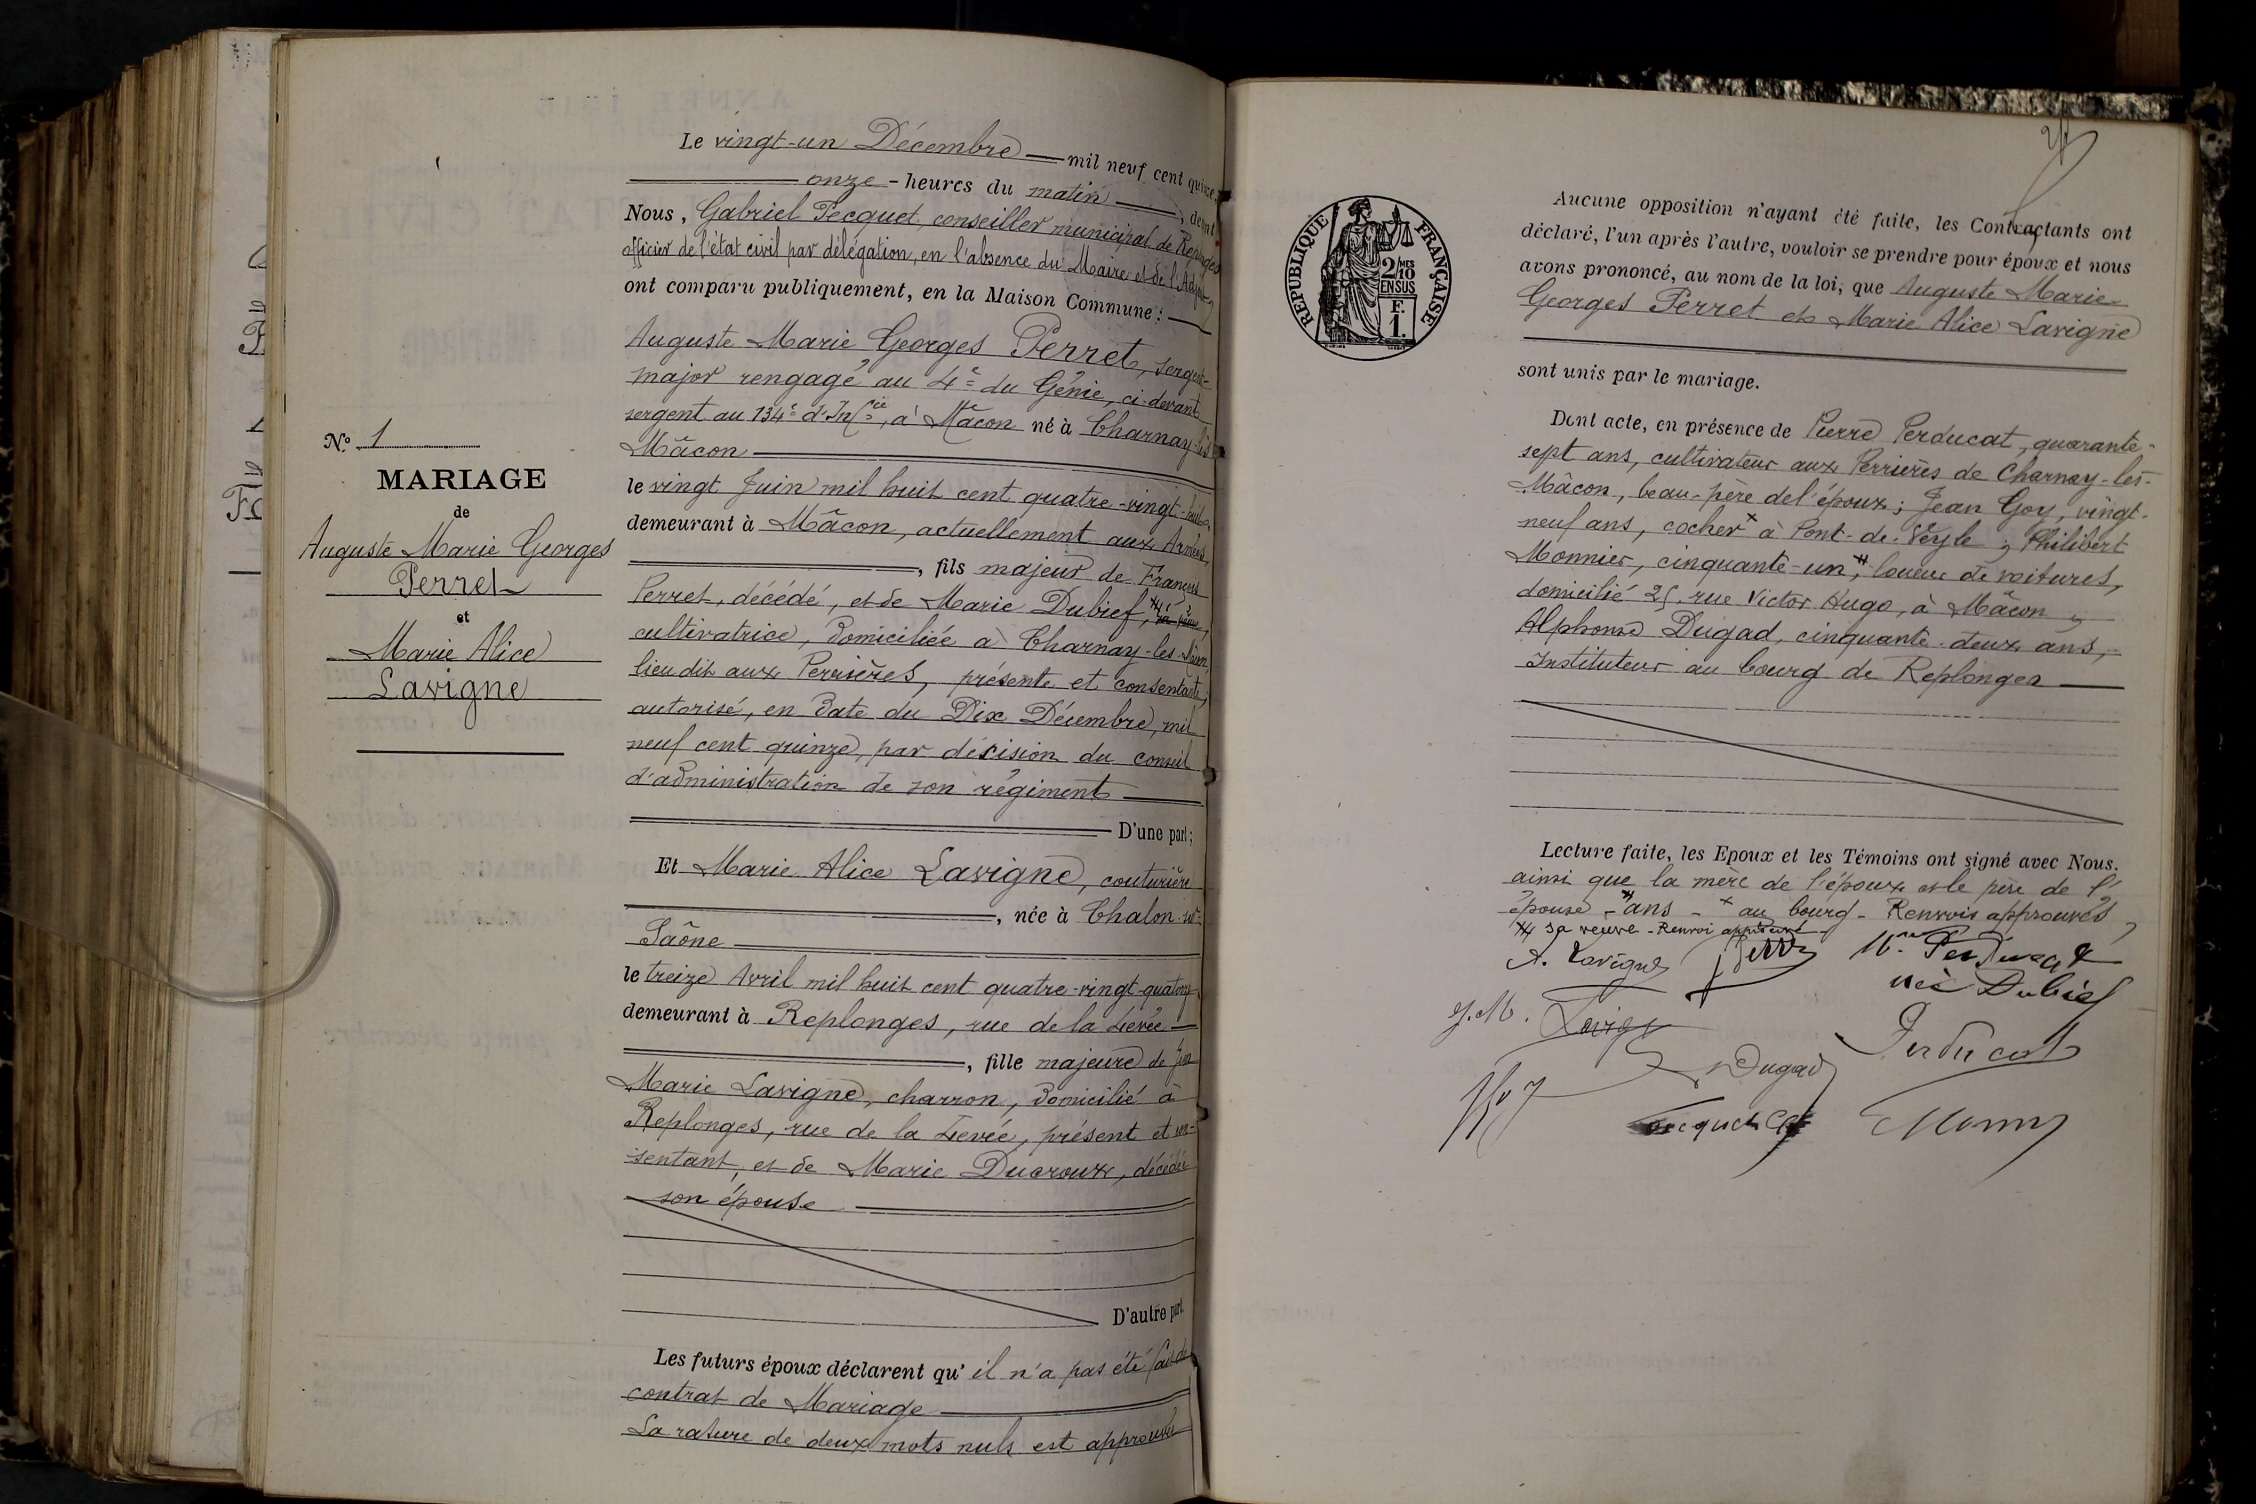 Le vingt-un Décembre mil neuf cent quinze
onze - heures du matin, devant
Nous, Gabriel Pecquet, conseiller municipal de Replonges
officier de l'état civil par délégation, en l'absence du Maire et de l'Adjoint
ont comparu publiquement, en la Maison Commune :
Auguste Marie Georges Perret, sergent-
major rengagé au 4e du Génie, ci-devant
sergent au 134e d'Infie, à Mâcon né à Charnay-lès
Mâcon
le vingt Juin mil huit cent quatre-vingt-huit,
demeurant à Mâcon, actuellement aux Armées,
, fils majeur de François
Perret, décédé, et de Marie Dubief, #
cultivatrice, domiciliée à Charnay-les-Mâcon,
lieu dit aux Perrières, présente et consentante,
autorisé, en date du Dix Décembre, mil
neuf cent quinze, par décision du conseil
d'administration de son régiment
D'une part ;
Et Marie Alice Lavigne, couturière
, née à Chalon-sur-
Saône
le treize Avril mil huit cent quatre-vingt-quatorze
demeurant à Replonges, rue de la Levée
, fille majeure de Jean
Marie Lavigne, charron, domicilié à
Replonges, rue de la Levée, présent et con-
sentant, et de Marie Ducroux, décédée
son épouse
D'autre part.
Les futurs époux déclarent qu'il n'a pas été fait de
contrat de Mariage
La rature de deux mots nuls est approuvée
No. 1
MARIAGE
de
Auguste Marie Georges
Perret
et
Marie Alice
Lavigne
RÉPUBLIQUE FRANÇAISE
2/10MES
EN SUS
F.
1.
Aucune opposition n'ayant été faite, les Contractants ont
déclaré, l'un après l'autre, vouloir se prendre pour époux et nous
avons prononcé, au nom de la loi, que Auguste Marie
Georges Perret et Marie Alice Lavigne
sont unis par le mariage.
Dont acte, en présence de Pierre Perducat, quarante-
sept ans, cultivateur aux Perrières de Charnay-les-
Mâcon, beau-père de l'époux ; Jean Goy, vingt-
neuf ans, cocher x à Pont-de-Veyle ; Philibert
Monnier, cinquante-un #, loueur de voitures,
domicilié 25, rue Victor Hugo, à Mâcon ;
Alphonse Dugad, cinquante-deux ans,
Instituteur au bourg de Replonges
Lecture faite, les Epoux et les Témoins ont signé avec Nous.
ainsi que la mère de l'époux et le père de l'
épouse - # ans - x au bourg - Renvois approuvés
# sa veuve - Renvoi approuvé
A. Lavigne Perret Mme Perducat
née Dubief
J. M. Lavigne
Perducat
Dugad
Goy
Pecquet Monnier